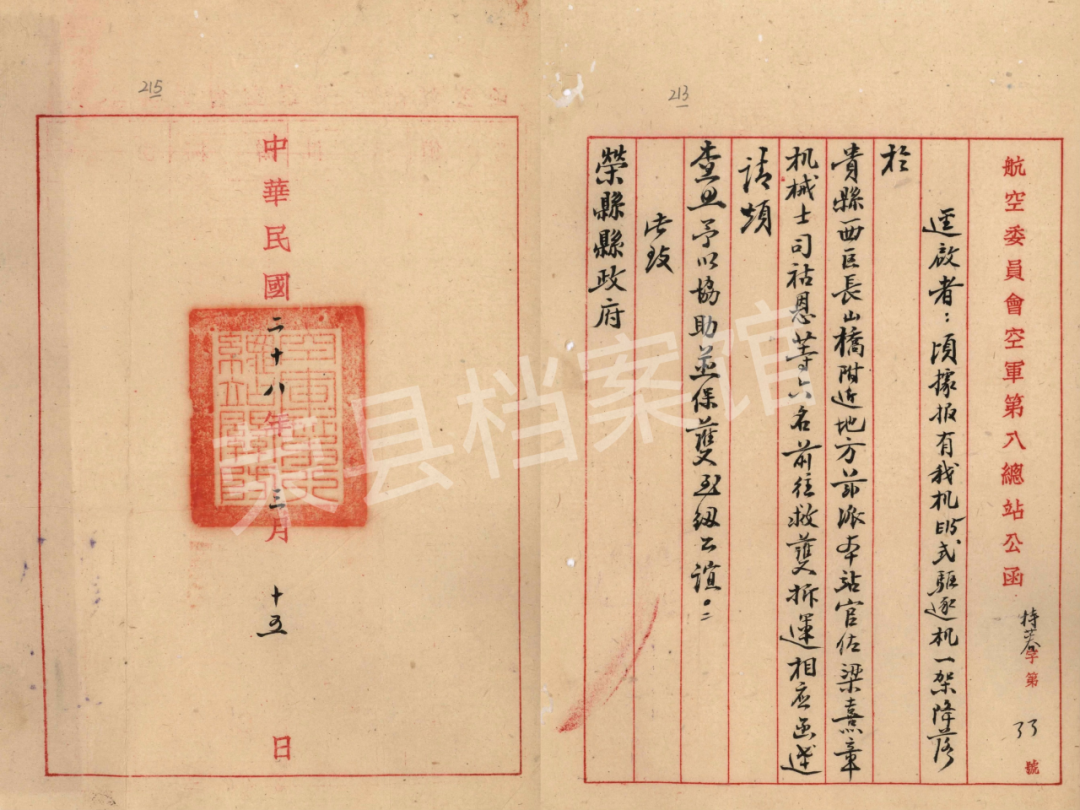 213
航空委員會空軍第八總站公函 特蓉字第33號
逕啟者：頃據報有我机E15式驅逐机一架降落
於
貴縣西區長山橋附近地方茲派本站官佐梁熹章
机械士司祜恩等六名前往救護拆運相应函達
請煩
查照予以協助並保護至紉公誼。
此致
榮縣縣政府
215
中華民國二十八年三月十五日
县档案馆